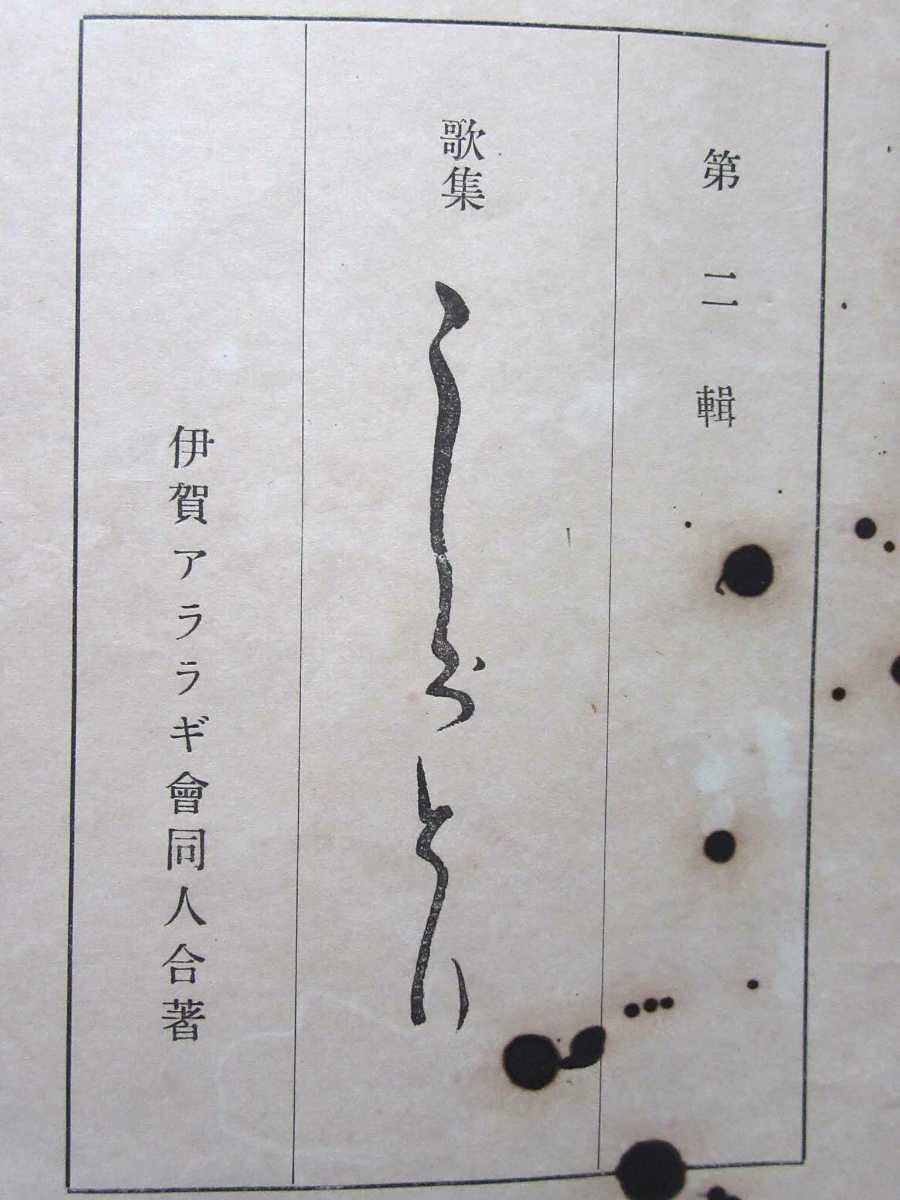 第二輯
歌集 しらとり
伊賀アララギ會同人合著